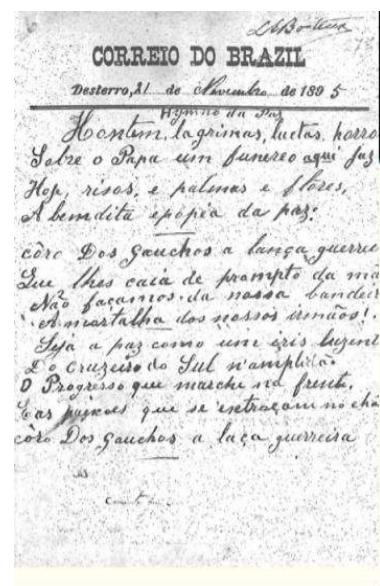 CORREIO DO BRAZIL
Desterro, 21 de Novembro de 1895
Hymno da Paz
Hontem, lagrimas, luctas, horro
Sobre o Papa um funereo aqui jaz
Hoje, risos, e palmas e flôres,
A bemdita epopéa da paz:
côro Dos gauchos a lança guerrei
Que lhes caia de prompto da ma
Não façamos da nossa bandeir
A mortalha dos nossos irmãos!
Seja a paz como um iris luzent
Do cruzeiro do Sul n'amplidão
O Progresso que marche na frente,
E as paixões que se extraçam no chã
côro Dos gauchos a laça guerreira